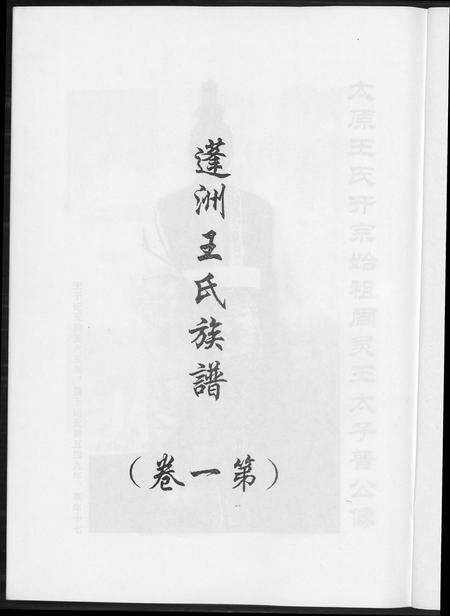 蓬洲王氏族譜
（第一卷）
太原王氏开宗始祖周灵王太子晋公像